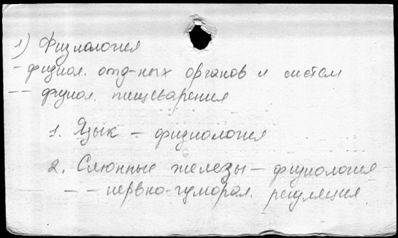 1) Физиология
- физиол. отд-ных органов и систем
-- физиол. пищеварения
1. Язык - физиология
2. Слюнные железы - физиология
-- нервно-гуморал. регуляция